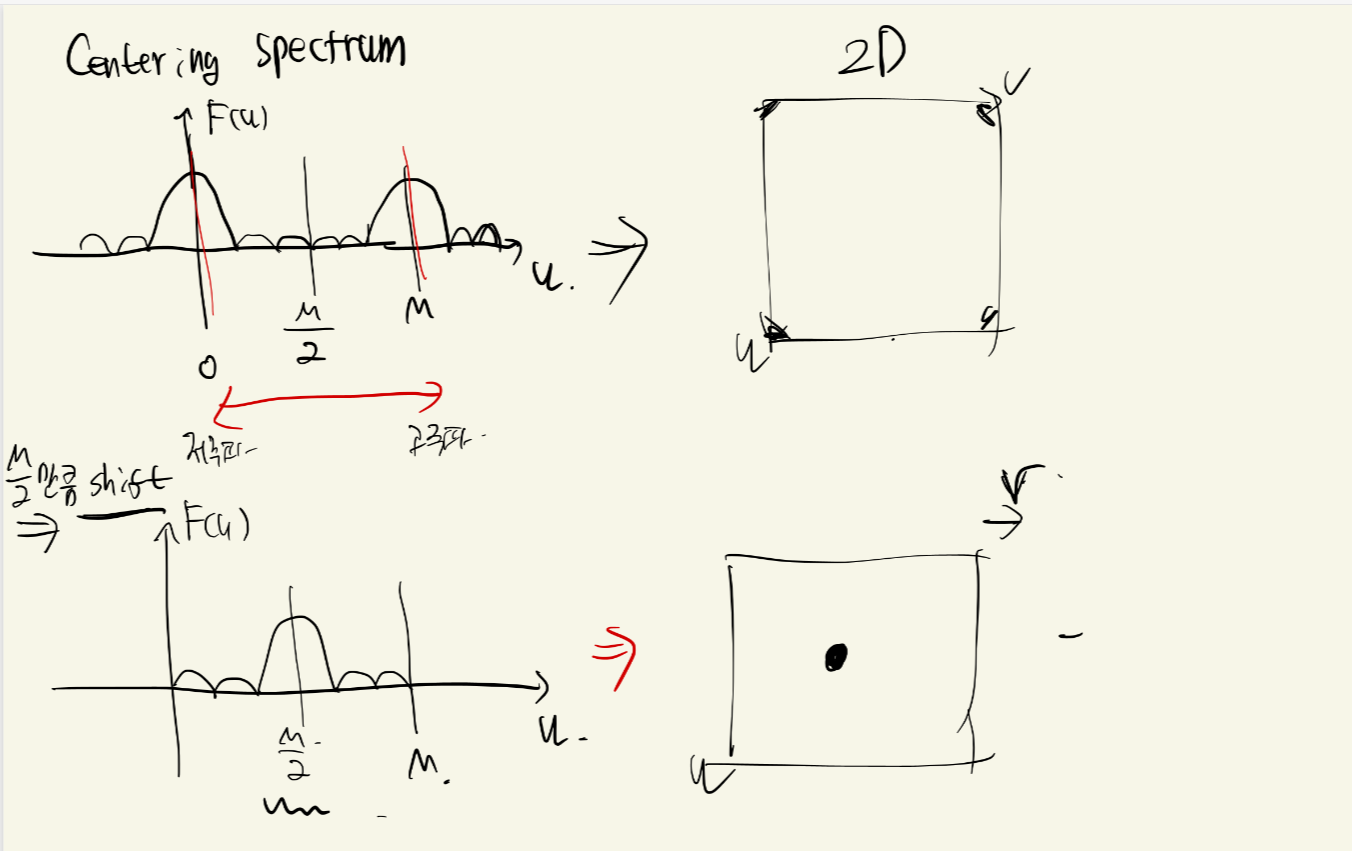 Centering spectrum
2D
F(u)
v
u.
M/2
M
0
u
저주파
고주파
M/2 만큼 shift
F(u)
v
u.
M/2
M.
u